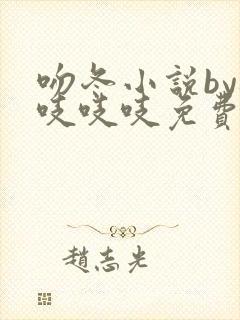 吻冬小説by
吱吱吱免費
趙志光